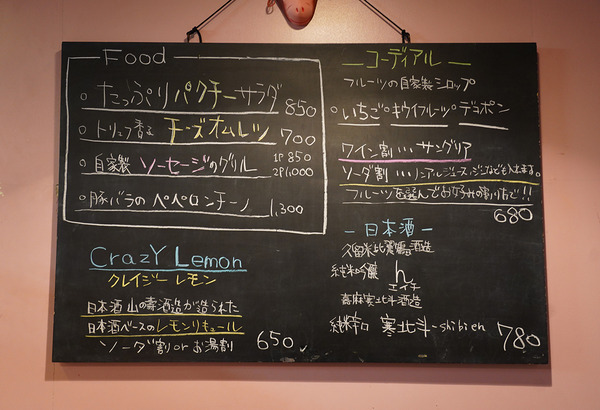 Food
たっぷりパクチーサラダ 850
トリュフ香る チーズオムレツ 700
自家製 ソーセージのグリル 1P 850
2P 1,000
豚バラの ペペロンチーノ 1,300
CrazY Lemon
クレイジー レモン
日本酒 山の壽酒造が造られた
日本酒ベースのレモンリキュール
ソーダ割 or お湯割 650
コーディアル
フルーツの自家製シロップ
いちご キウイフルーツ デコポン
ワイン割 … サングリア
ソーダ割 … ノンアルジュース
フルーツを選んでお好みの割り方で!!
680
日本酒
純米吟醸 h
エイチ
寒北斗酒造
純米辛口 寒北斗 -shibien 780